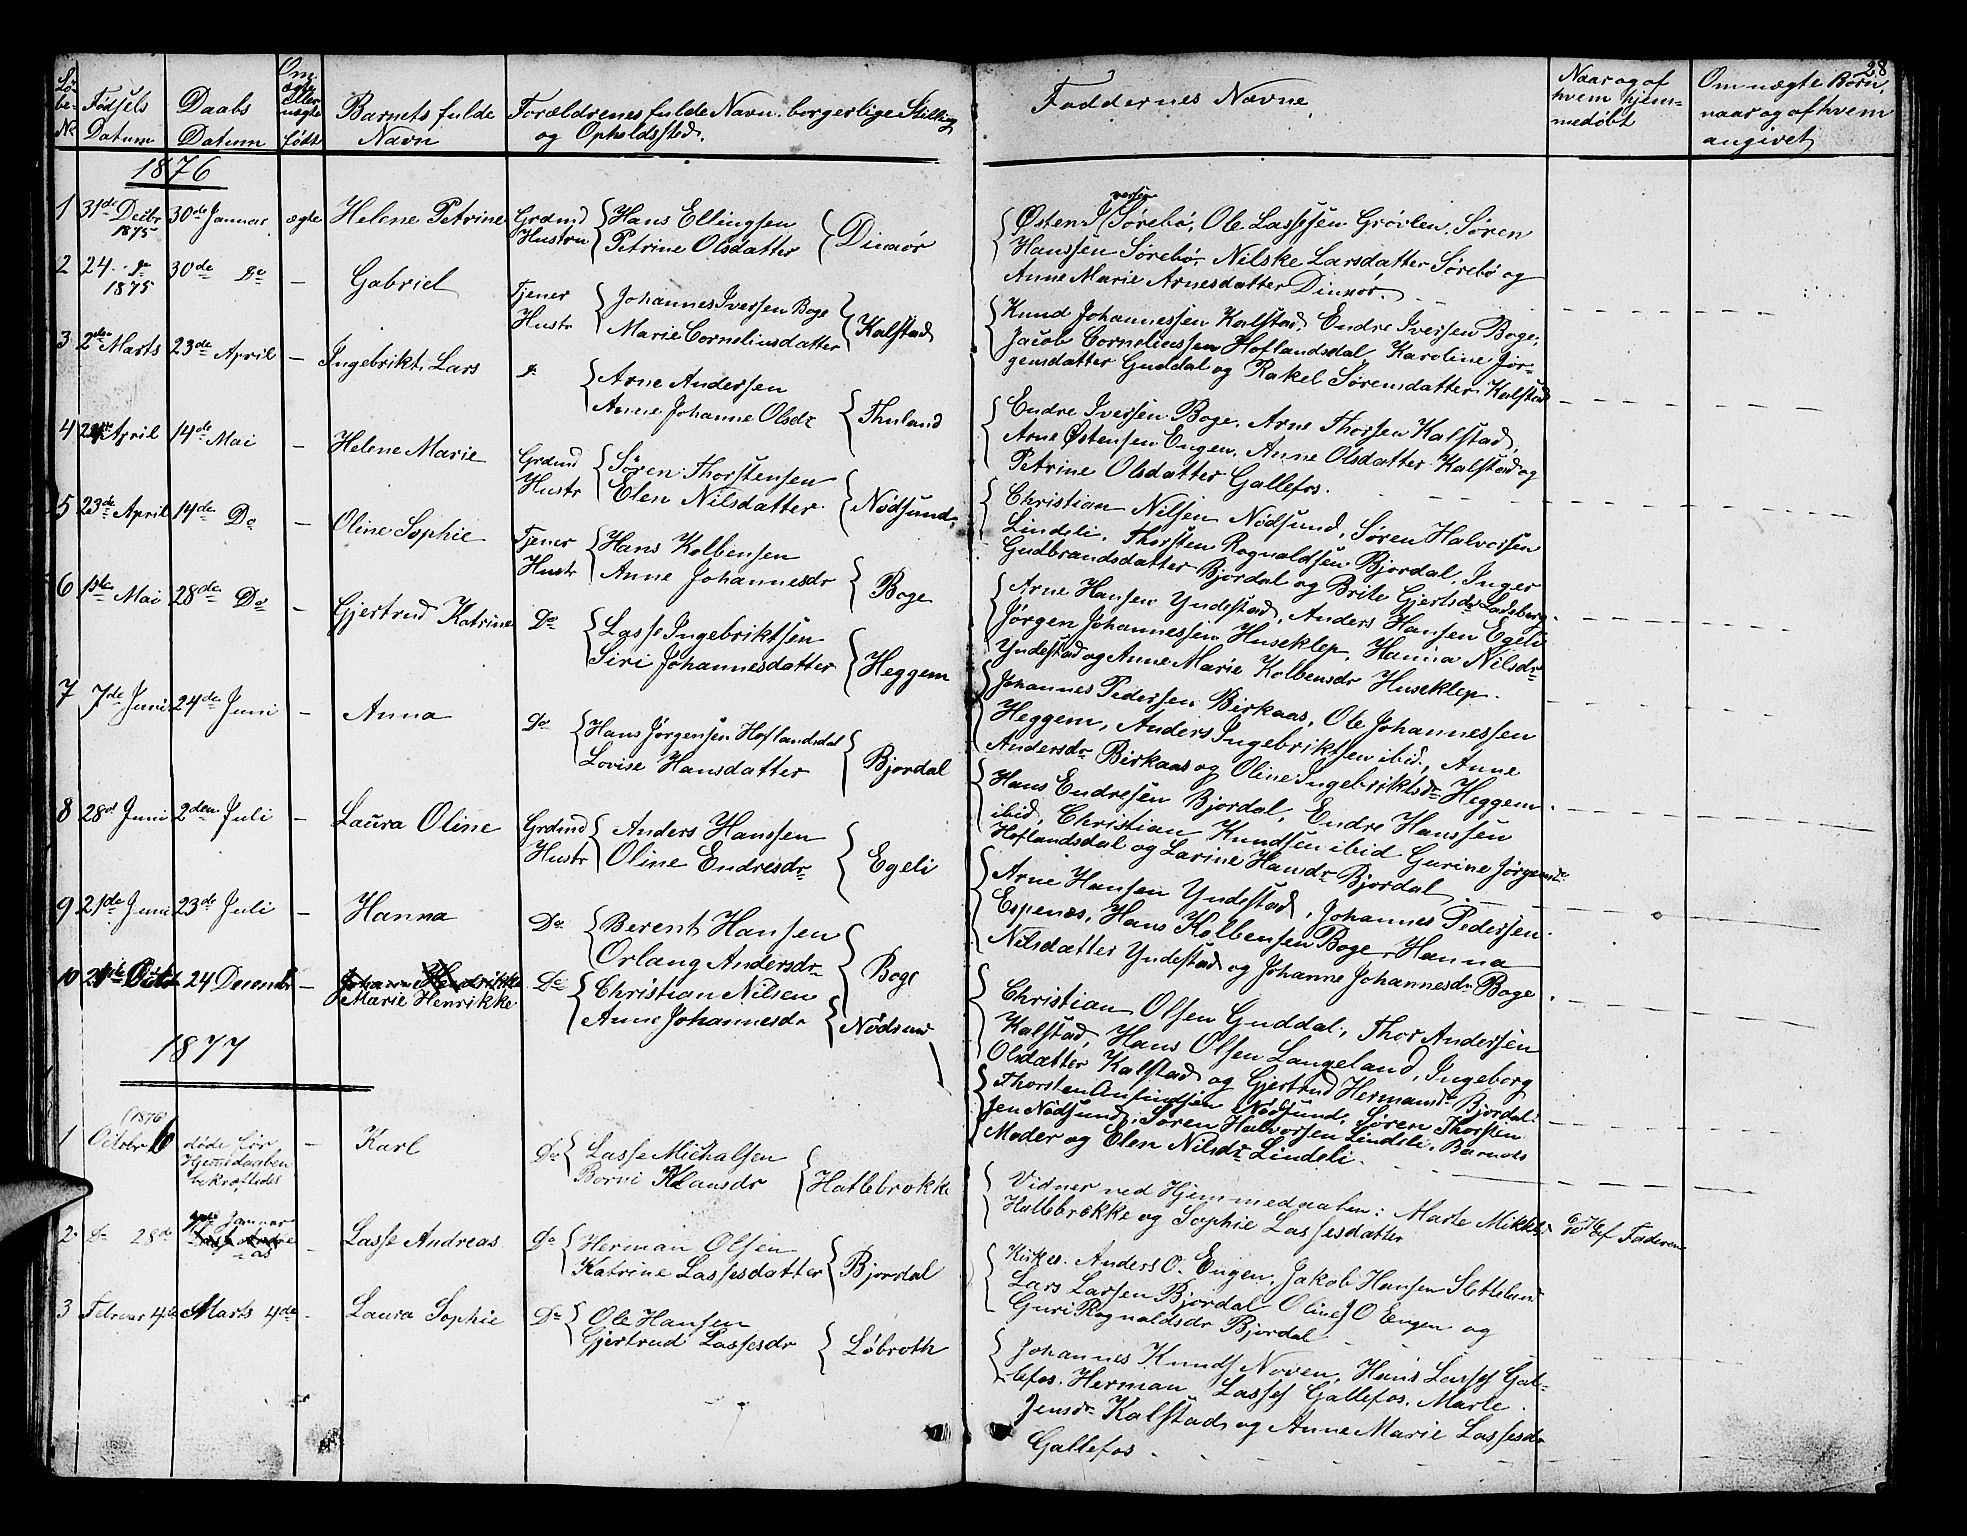 28
Lø-
be-
No
Fødsels
Datum
Daabs
Datum
Om
ægte
eller
uægte
født
Barnets fulde
Navn
Forældrenes fulde Navn, borgerlige Stilling
og Opholdssted.
Faddernes Navne
Naar og af
hvem hjem-
medøbt
Om uægte Børn,
naar og af hvem
angivet
1876
1 31de Decbr 1875 30de Januar ægte Helene Petrine Grdmd Hans Ellingsen
Hustru Petrine Olsdatter Dimør
Østen I Sørebø, Ole Lassesen Grøvlen, Søren
Hanssen Sørebø, Nilske Larsdatter Sørebø og
Anne Marie Arnesdatter Dimør.
2 24 do 1875 30de Do — Gabriel Tjener Johannes Iversen Boge
Hustr Marie Corneliusdatter Kalstad
Knud Johannessen Kalstad, Endre Iversen Boge,
Jacob Corneliussen Hoflandsdal, Karoline Jør-
gensdatter Guddal og Rakel Sørensdatter Kalstad
3 2den Marts 23de April — Ingebrikt Lars do Arne Andersen
Anne Johanne Olsdr Thuland
Endre Iversen Boge, Arne Thorsen Kalstad,
Arne Østensen Engen, Anne Olsdatter Kalstad og
Petrine Olsdatter Gallefos.
4 April 14de Mai — Helene Marie Grdmd Søren Thorstensen
Hustr Elen Nilsdatter Nødsund
Christian Nilsen Nødsund, Søren Halvorsen
Lindeli, Thorsten Rognaldsen Bjordal, Inger
Gudbrandsdatter Bjordal og Brite Gjertsdr Ladeberg.
5 23de April 14de Do — Oline Sophie Tjener Hans Kolbensen
Hustr Anne Johannesdr Boge
Arne Hansen Yndestad, Anders Hansen Egeli
Jørgen Johannessen Huseklep, Hanna Nilsdr
Yndestad og Anne Marie Kolbensdr Huseklep.
6 1ste Mai 28de Do — Gjertrud Katrine Do Lasse Ingebriktsen
Siri Johannesdatter Heggem
Johannes Pedersen Birkaas, Ole Johannessen
Heggem, Anders Ingebriktsen ibid, Anne
Andersdr Birkaas og Oline Ingebriktsdr Heggem.
7 7de Juni 24de Juni — Anna Do Hans Jørgensen Hoflandsdal
Lovise Hansdatter Bjordal
Hans Endresen Bjordal, Endre Hanssen
ibid, Christian Knudsen ibid Gurine Jørgensdr
Hoflandsdal og Larine Hansdr Bjordal
8 28de Juni 2den Juli — Laura Oline Grdmd Anders Hanssen
Hustr Oline Endresdr Egeli
Arne Hansen Yndestad, Johannes Pedersen
Espenes, Hans Kolbensen Boge, Hanna
Nilsdatter Yndestad og Johanne Johannesdr Boge.
9 21de Juni 23de Juli — Hanna Do Berent Hansen
Orlaug Andersdr Boge
Christian Olsen Guddal, Thor Andersen
Kalstad, Hans Olsen Langeland, Ingeborg
Olsdatter Kalstad og Gjertrud Hermansdr Bjordal.
10 Octbr 24 Decembr — Johanne Hendrikke
Marie Henrikke Do Christian Nilsen
Anne Johannesdr Nødsund
Thorsten Amundsen Nødsund, Søren Thorsten
sen Nødsund, Søren Halvorsen Lindeli, Barnets
Moder og Elen Nilsdr Lindeli.
1877
(1876)
1 Octobr 6 døde før
Hjemdaaben
bekræftedes — Karl Do Lasse Michalsen
Borni Klausdr Hatlebrække
Vidner ved Hjemmedaaben: Marte Mikkels.
Hatlebrække og Sophie Lassesdatter
6/10 76 af Faderen
2 Do 28de Januar — Lasse Andreas Do Herman Olsen
Katrine Lassesdatter Bjordal
Kirkes. Anders O. Engen, Jakob Hansen Slettelund
Lars Larsen Bjordal Oline J O Engen og
Guri Rognaldsdr Bjordal
3 Februar 4de Marts 4de — Laura Sophie Do Ole Hansen
Gjertrud Lassesdr Løbroth
Johannes Knuds Noven, Hans Lasses Gal-
lefos, Herman Lasses Gallefos, Marte
Jensdr Kalstad og Anne Marie Lassesdr
Gallefos